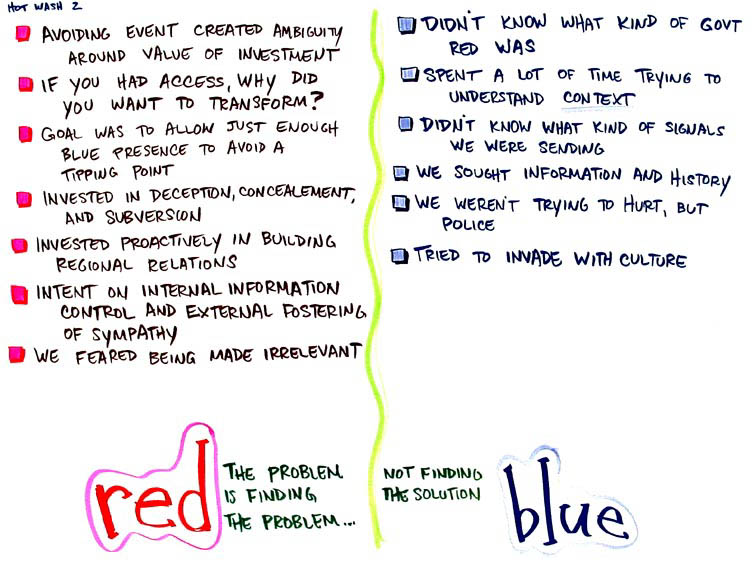 HOT WASH 2
AVOIDING EVENT CREATED AMBIGUITY
AROUND VALUE OF INVESTMENT
IF YOU HAD ACCESS, WHY DID
YOU WANT TO TRANSFORM?
GOAL WAS TO ALLOW JUST ENOUGH
BLUE PRESENCE TO AVOID A
TIPPING POINT
INVESTED IN DECEPTION, CONCEALEMENT,
AND SUBVERSION
INVESTED PROACTIVELY IN BUILDING
REGIONAL RELATIONS
INTENT ON INTERNAL INFORMATION
CONTROL AND EXTERNAL FOSTERING
OF SYMPATHY
WE FEARED BEING MADE IRRELEVANT
red
THE PROBLEM
IS FINDING
THE PROBLEM...
DIDN'T KNOW WHAT KIND OF GOVT
RED WAS
SPENT A LOT OF TIME TRYING TO
UNDERSTAND CONTEXT
DIDN'T KNOW WHAT KIND OF SIGNALS
WE WERE SENDING
WE SOUGHT INFORMATION AND HISTORY
WE WEREN'T TRYING TO HURT, BUT
POLICE
TRIED TO INVADE WITH CULTURE
NOT FINDING
THE SOLUTION
blue